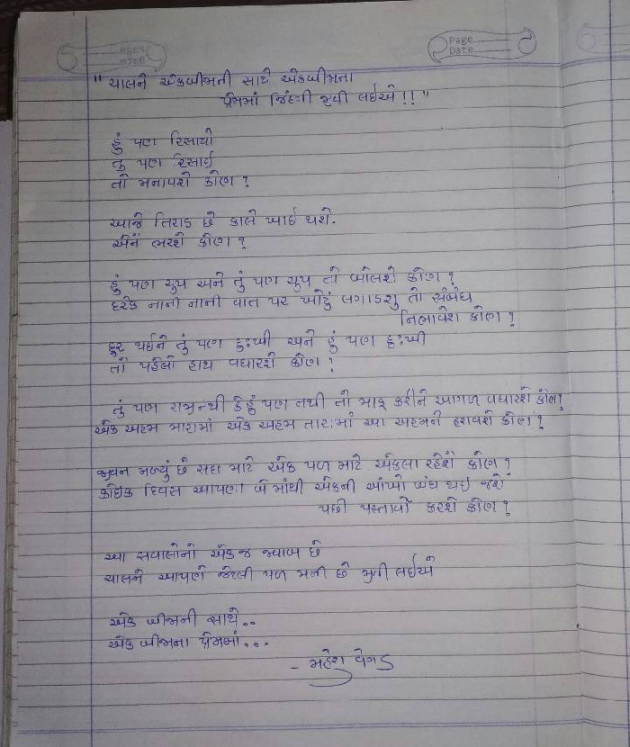 Page
Date
"ચાલને એકબીજાની સાથે એકબીજાના
પ્રેમમાં જિંદગી જીવી લઈએ!!"
હું પણ રિસાયો
તુ પણ રિસાઈ
તો મનાવશે કોણ?
આજે તિરાડ છે કાલે ખાઈ થશે.
એને ભરશે કોણ?
હું પણ ચુપ અને તું પણ ચુપ તો બોલશે કોણ?
દરેક નાની નાની વાત પર ખોટું લગાડશુ તો સંબંધ
નિભાવશે કોણ?
દુર થઈને તું પણ દુ:ખી અને હું પણ દુ:ખી
તો પહેલો હાથ વધારશે કોણ?
તું પણ રાજી નથી કે હું પણ નથી તો માફ કરીને આગળ વધારશે કોણ?
એક અહમ મારામાં એક અહમ તારામાં આ અહમને હરાવશે કોણ?
જીવન મળ્યું છે સદા માટે એક પળ માટે એકલા રહેશે કોણ?
કોઈક દિવસ આપણા બે માંથી એકની આંખો બંધ થઈ જશે
પછી પસ્તાવો કરશે કોણ?
આ સવાલોનો એક જ જવાબ છે
ચાલને આપણે જેટલી પળ મળી છે જીવી લઈએ
એક બીજાની સાથે..
એક બીજાના પ્રેમમાં...
- મહેશ વેગડ